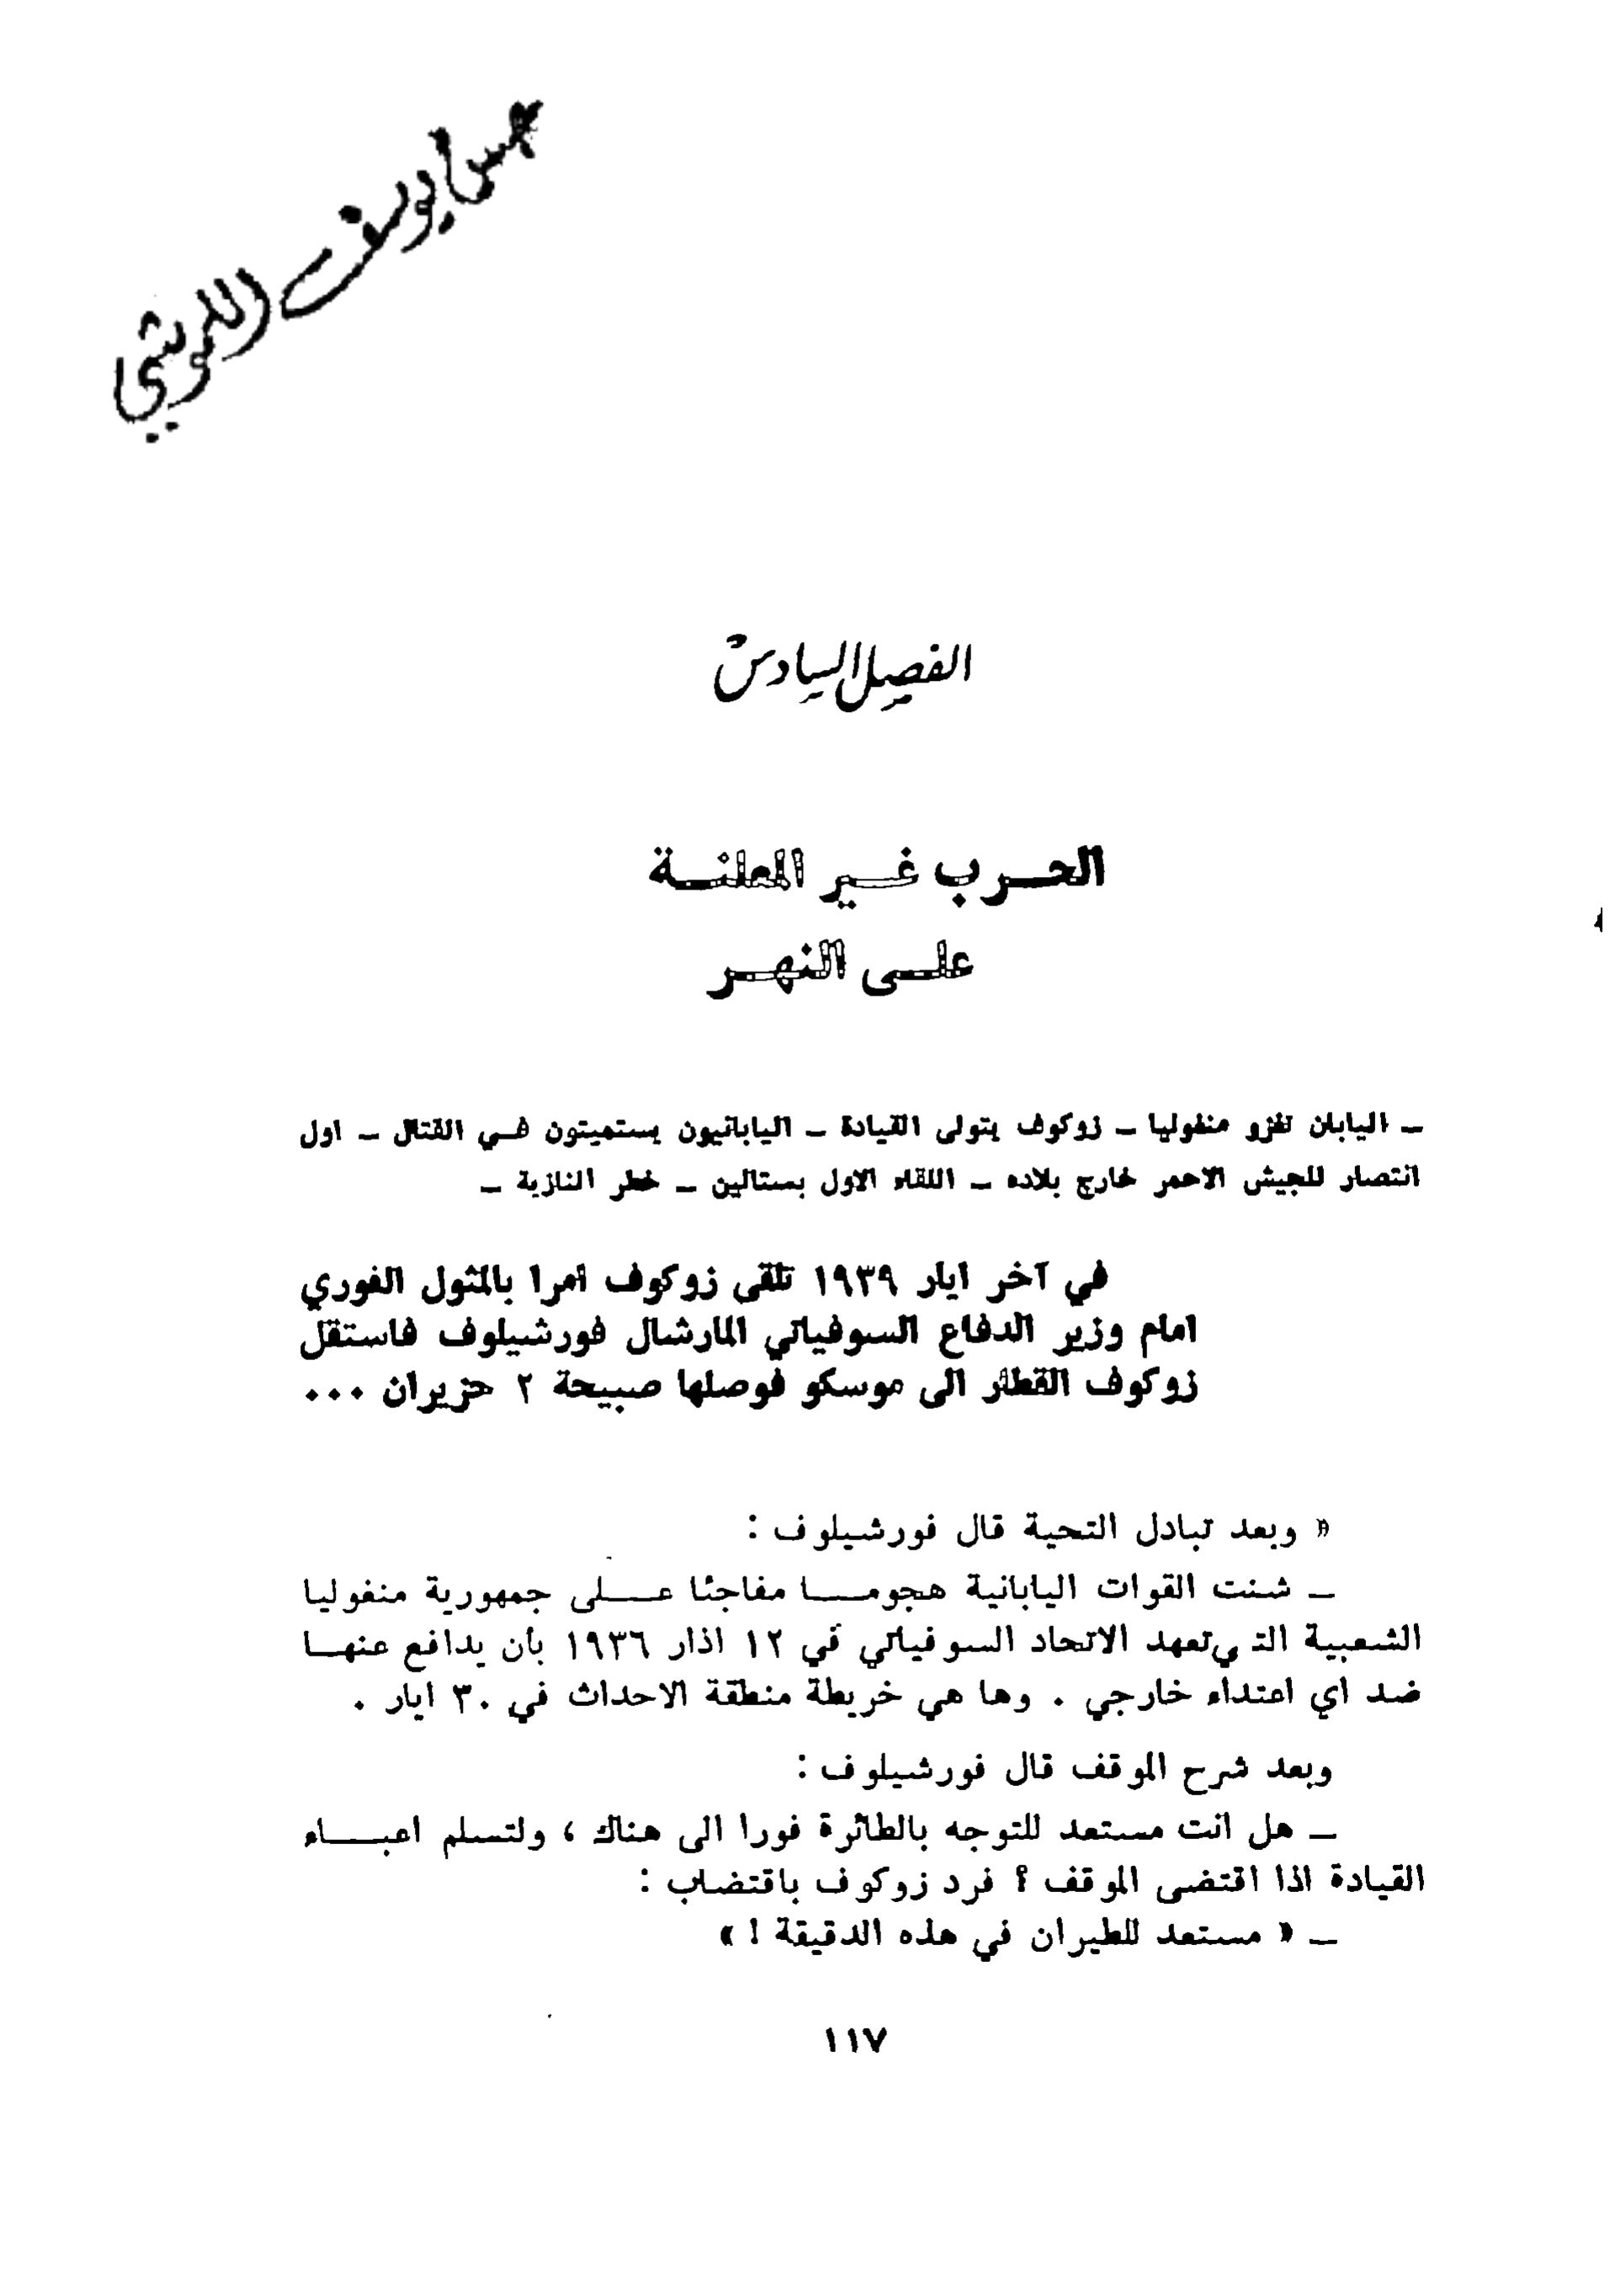 يوسف
الفصل السادس
الحرب غير المعلنة
على النهر
– اليابان تغزو منغوليا – زوكوف يتولى القيادة – اليابانيون يستميتون في القتال – اول
انتصار للجيش الاحمر خارج بلاده – اللقاء الاول بستالين – خطر النازية –
في آخر ايار ١٩٣٩ تلقى زوكوف امرا بالمثول الفوري
امام وزير الدفاع السوفياتي المارشال فورشيلوف فاستقل
زوكوف القطار الى موسكو فوصلها صبيحة ٢ حزيران ...
« وبعد تبادل التحية قال فورشيلوف :
– شنت القوات اليابانية هجوما مفاجئا على جمهورية منغوليا
الشعبية التي تعهد الاتحاد السوفياتي في ١٢ اذار ١٩٣٦ بأن يدافع عنها
ضد اي اعتداء خارجي . وها هي خريطة منطقة الاحداث في ٣٠ ايار .
وبعد شرح الموقف قال فورشيلوف :
– هل انت مستعد للتوجه بالطائرة فورا الى هناك ، ولتسلم اعباء
القيادة اذا اقتضى الموقف ؟ فرد زوكوف باقتضاب :
– « مستعد للطيران في هذه الدقيقة ! »
١١٧